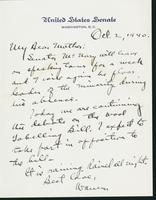 United States Senate
WASHINGTON, D.C.
Oct 2, 1940.
My Dear Mother,
Senator McNary will leave
on speaking tours for a week
and I will again be floor
leader of the minority during
his absence.
Today we are continuing
the debate on the wool
labelling Bill. I expect to
take part in opposition to
the bill.
It is raining hard all night
Best Love,
Warren